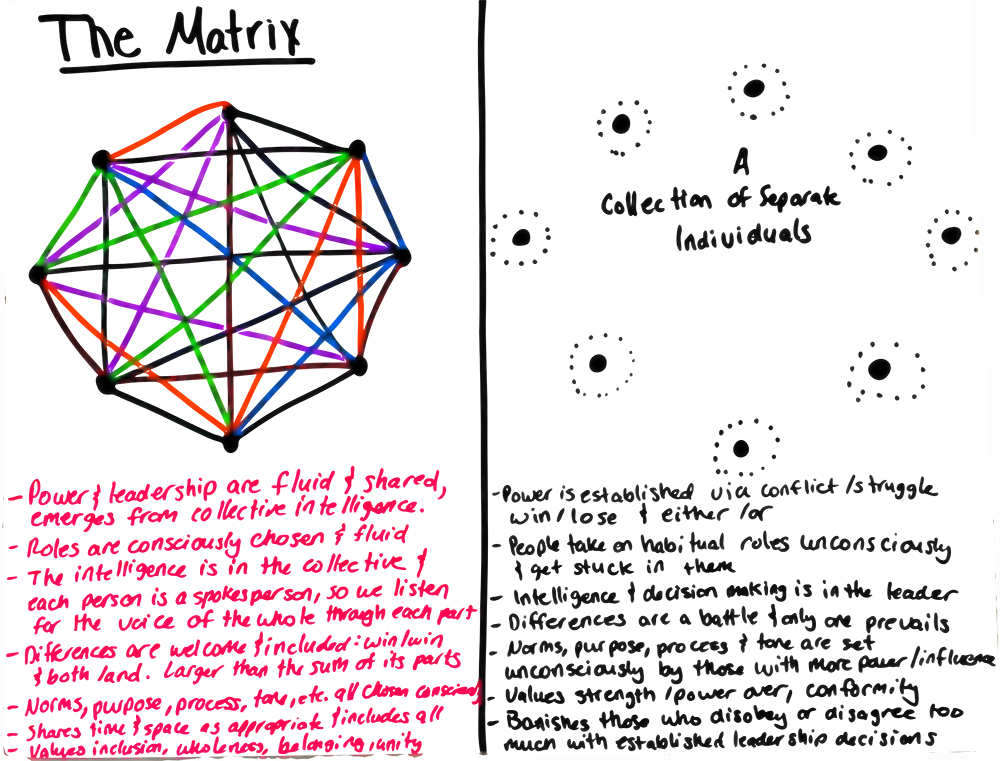 The Matrix
- Power & leadership are fluid & shared,
emerges from collective intelligence.
- Roles are consciously chosen & fluid
- The intelligence is in the collective &
each person is a spokesperson, so we listen
for the voice of the whole through each part
- Differences are welcome & included: win/win
& both/and. Larger than the sum of its parts
- Norms, purpose, process, tone, etc. all chosen consciously
- Shares time & space as appropriate & includes all
- Values inclusion, wholeness, belonging, unity
A
Collection of Separate
Individuals
- Power is established via conflict/struggle
win/lose & either/or
- People take on habitual roles unconsciously
& get stuck in them
- Intelligence & decision making is in the leader
- Differences are a battle & only one prevails
- Norms, purpose, process & tone are set
unconsciously by those with more power/influence
- Values strength/power over, conformity
- Banishes those who disobey or disagree too
much with established leadership decisions